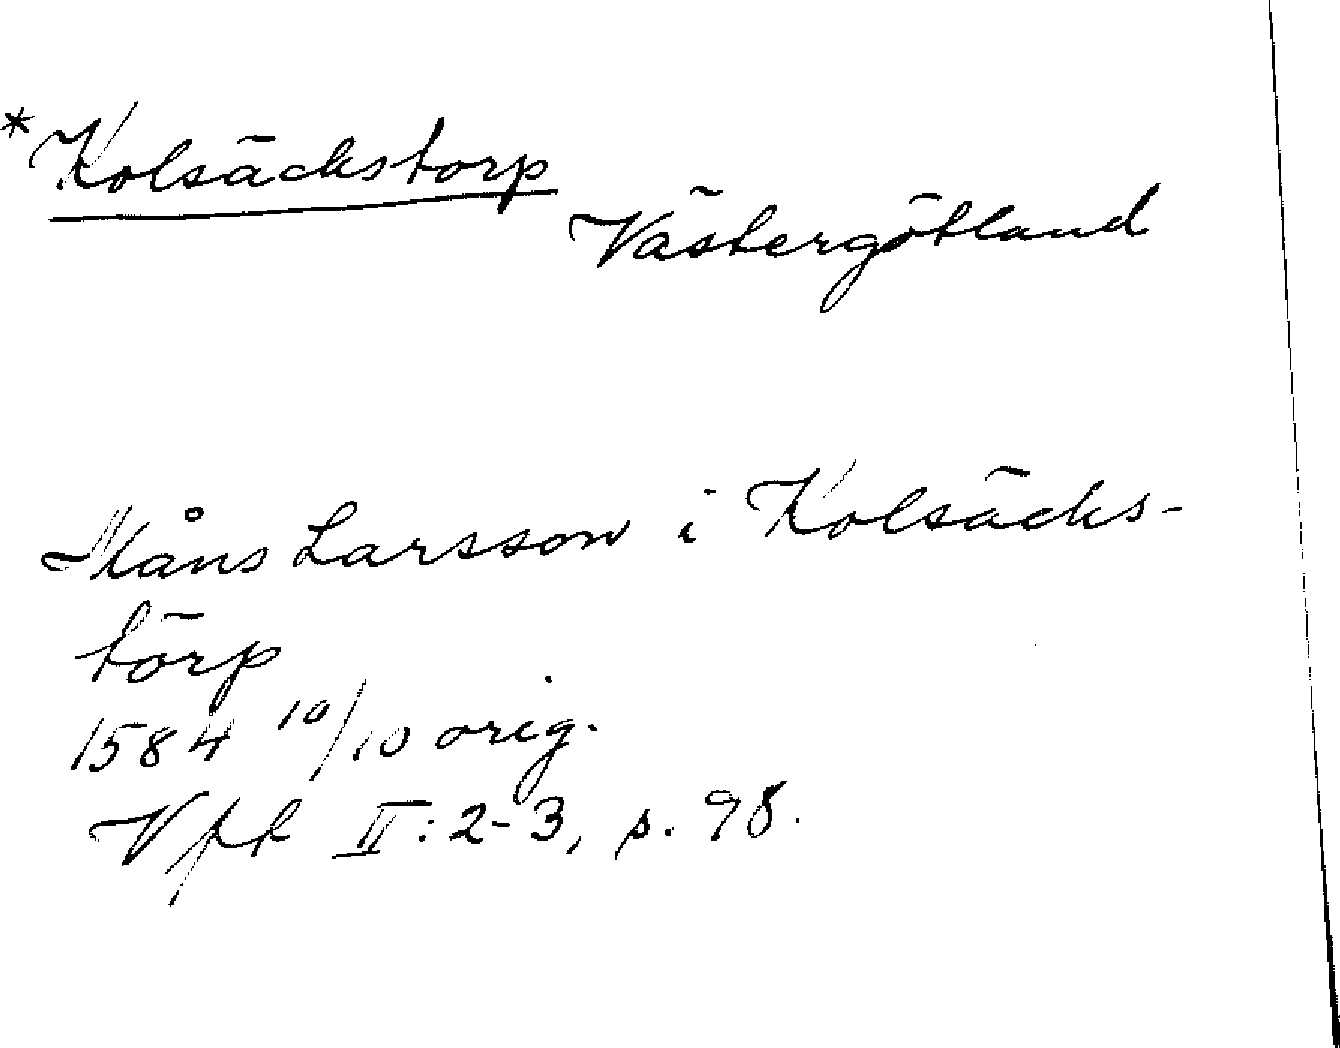 *Kolsäckstorp
Västergötland
Måns Larsson i Kolsäcks-
törp
1584 10/10 orig.
Vfk II: 2-3, s. 98.